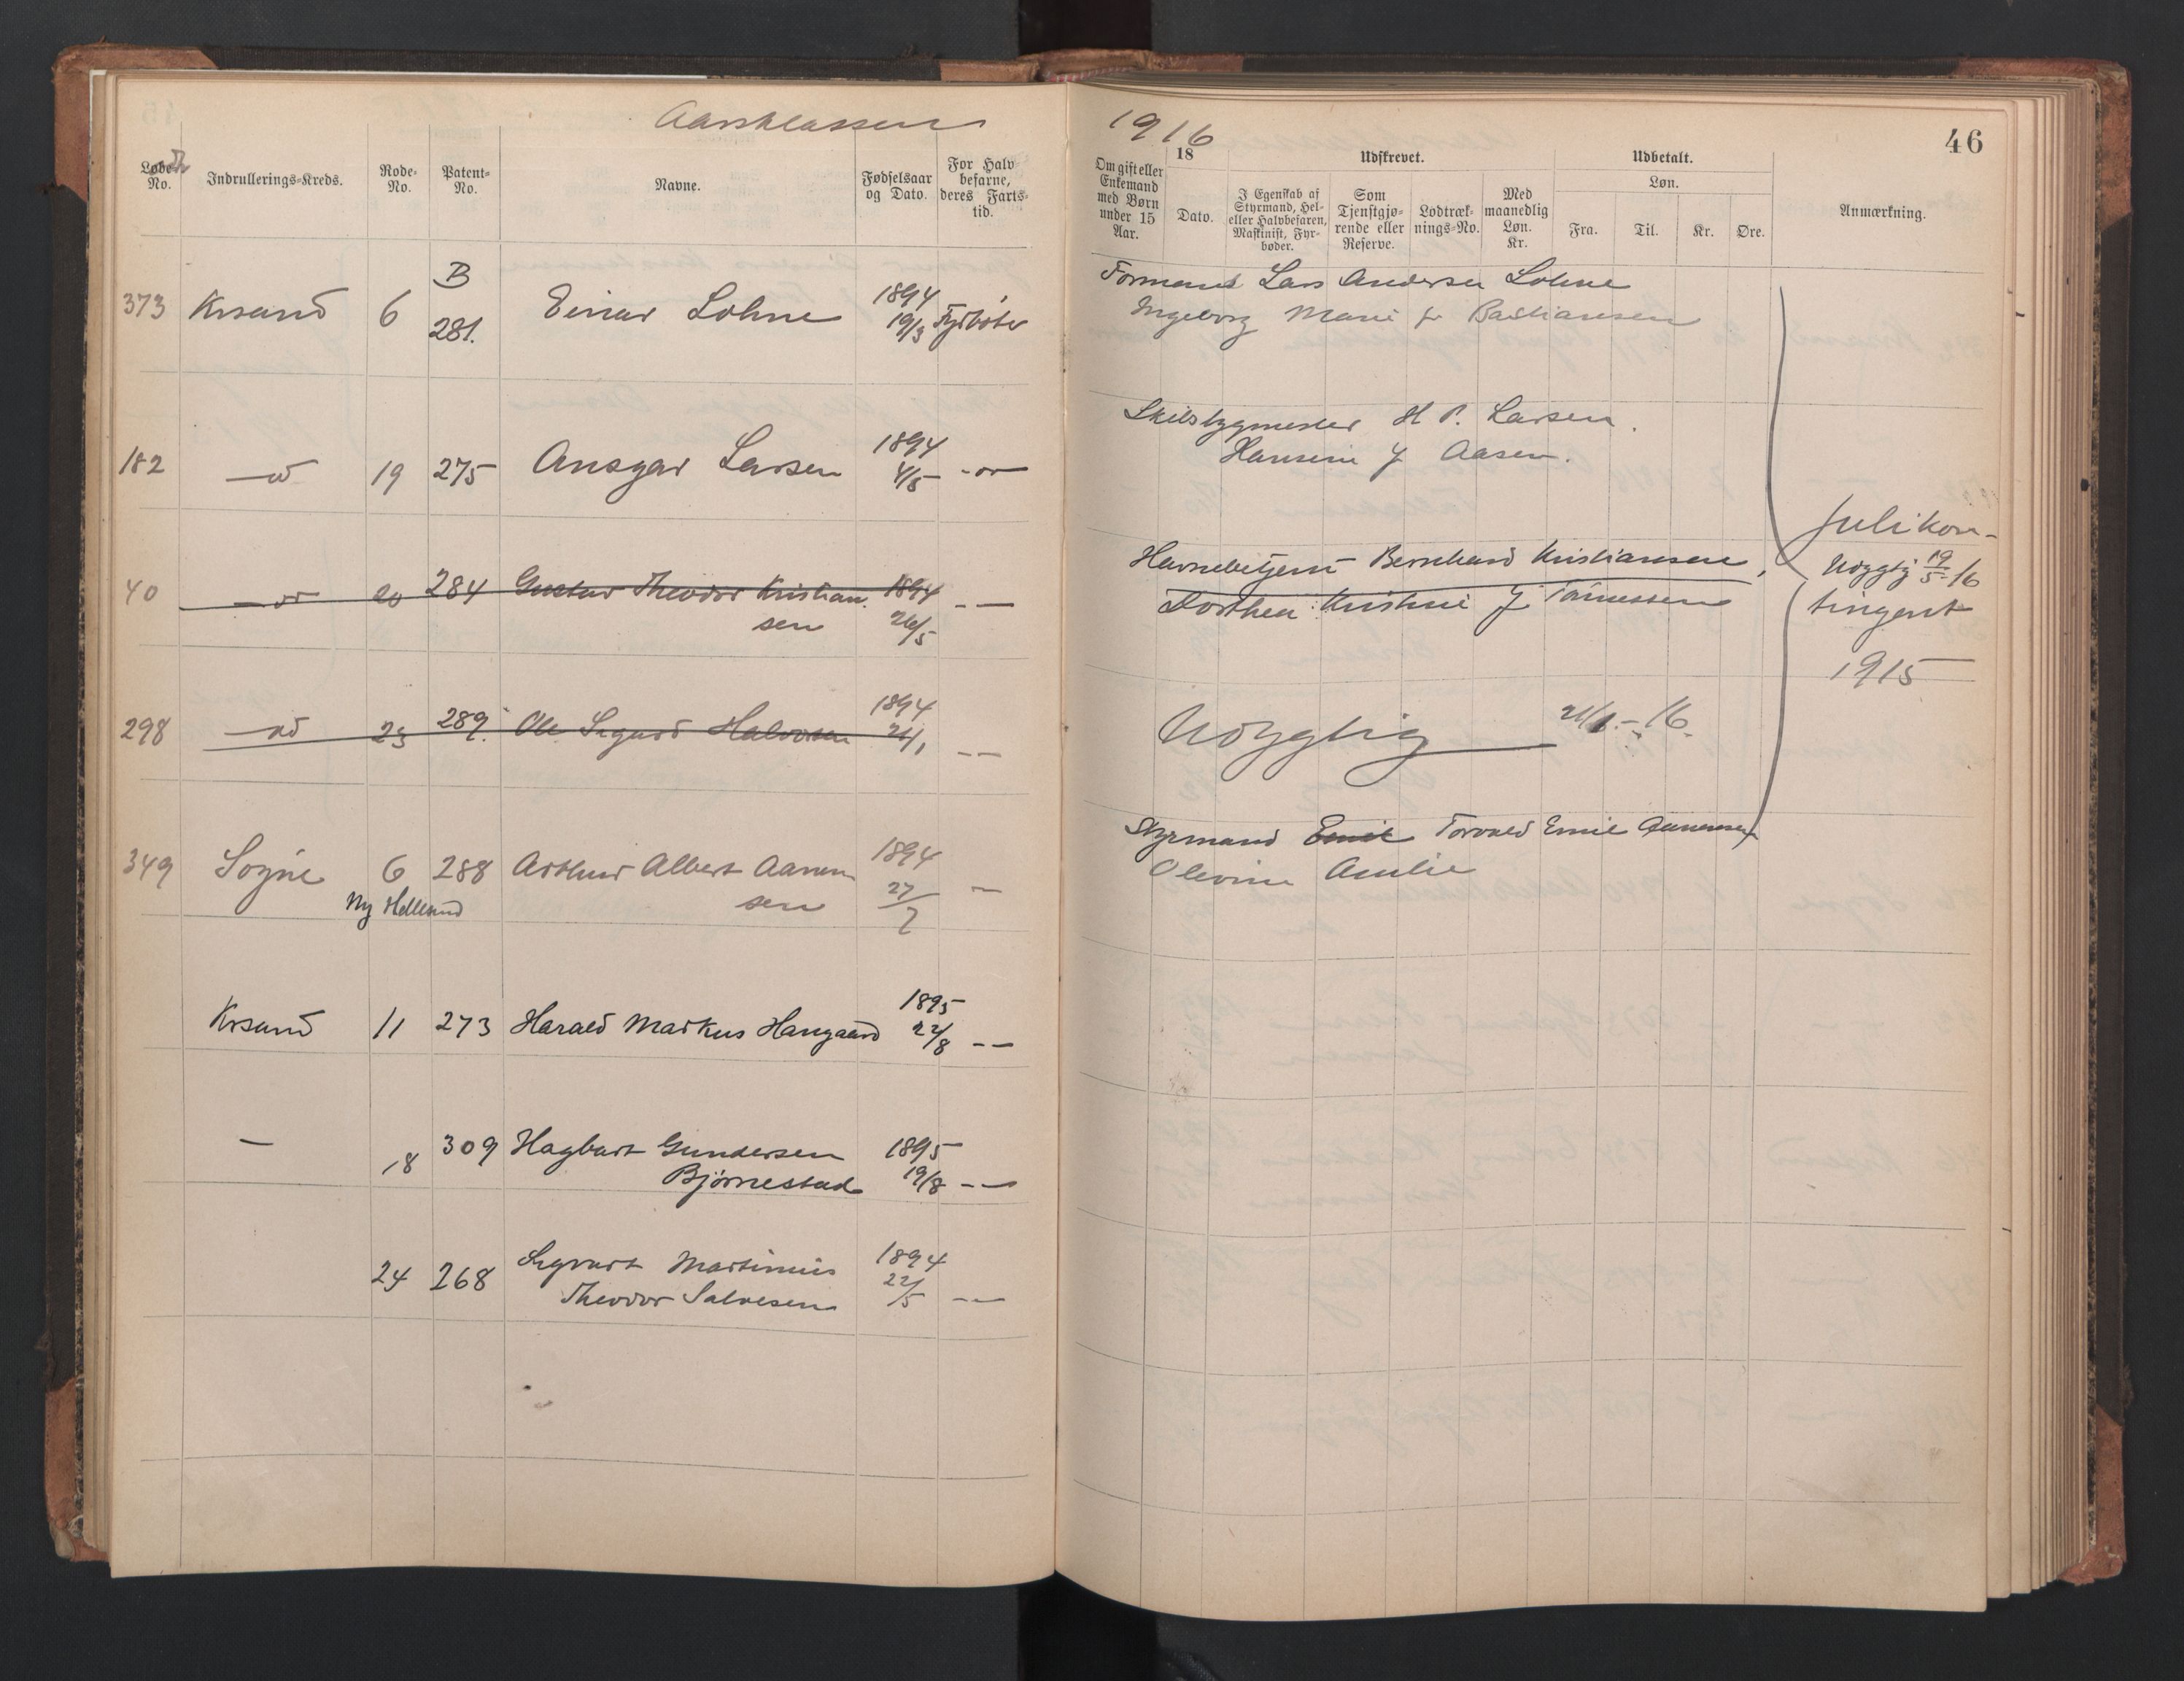 Aarsklassen
1916
46
Løbe-No.
Indrullerings-Kreds.
Rode-No.
Patent-No.
Navne.
Fødselsaar og Dato.
For Halvbefarne, deres Fartstid.
Om gift eller Enkemand med Børn under 15 Aar.
18
Dato.
Udskrevet.
I Egenskab af Styrmand, Hel- eller Halvbefaren, Maskinist, Fyrbøder.
Som Tjenstgjørende eller Reserve.
Lodtræknings-No.
Med maanedlig Løn. Kr.
Udbetalt.
Løn.
Fra.
Til.
Kr.
Øre.
Anmærkning.
B
373 Krsand 6 281. Einar Lohne 1894 19/3 Fyrbøter
Formand Lars Andersen Lohne
Ingeborg Marie f Bastiansen
182 —d 19 275 Ansgar Larsen 1894 4/5 -"-
Skibsbygmester H P. Larsen.
Hansine f Aasen.
40 —"— 20 284 Gustav Theodor Kristian- 1894 — —
sen 26/5
Havnebetjent Bernhard Kristiansen,
Dorthea Kristine f Tønnessen
Julikon-
Udygtig 19/5-16
tingent
1915
298 —d 23 289. Ole Sigurd Halvorsen 1894 21/1 — —
Udygtig 21/1.-16.
349 Sogne 6 288 Arthur Albert Aanen 1894 —
Ny Hellesund sen 27/7
Styrmand Emil Torvald Emil Aanensen
Olevine Amalie
Krsand 11 273 Harald Markus Haugaard 1895 22/8 — —
— 18 309 Hagbart Gundersen 1895
Bjørnestad 19/8 — —
24 268 Sigvart Martinius 1894
Theodor Salvesen 22/5 — —